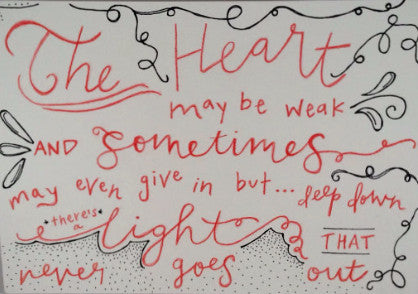 The Heart
may be weak
AND sometimes
may even give in but... deep down
there's
a
light
THAT
never goes out